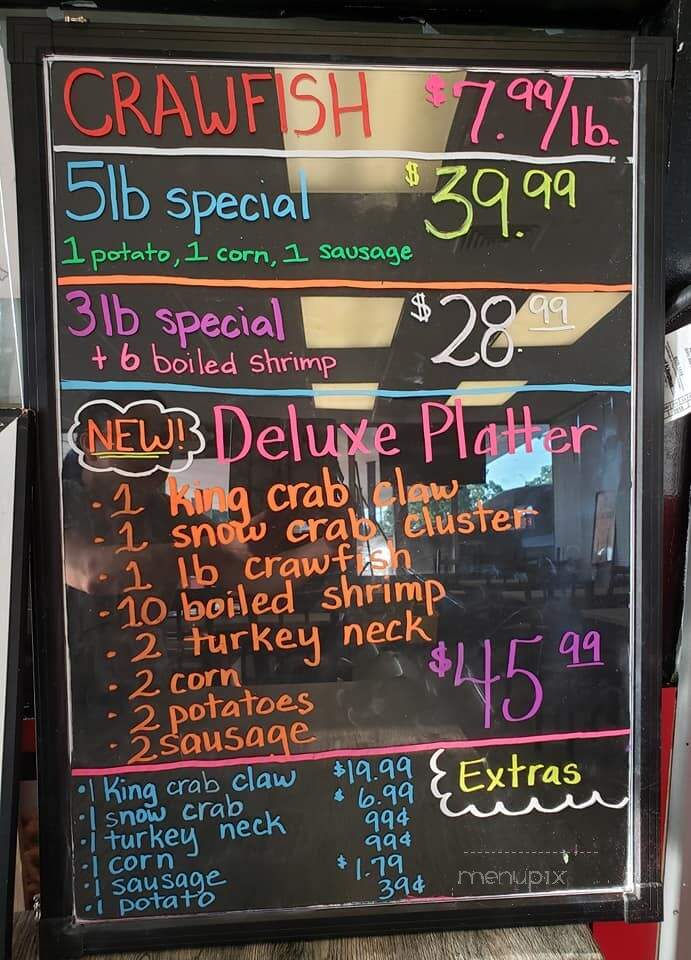 CRAWFISH $7.99/lb.
5lb special $39.99
1 potato, 1 corn, 1 sausage
3lb special $28.99
+ 6 boiled shrimp
NEW! Deluxe Platter
- 1 king crab claw
- 1 snow crab cluster
- 1 lb crawfish
- 10 boiled shrimp
- 2 turkey neck
- 2 corn
- 2 potatoes
- 2 sausage
$45.99
Extras
• 1 King crab claw $19.99
• 1 snow crab $6.99
• 1 turkey neck 99¢
• 1 corn 99¢
• 1 sausage $1.79
• 1 potato 39¢
menupix